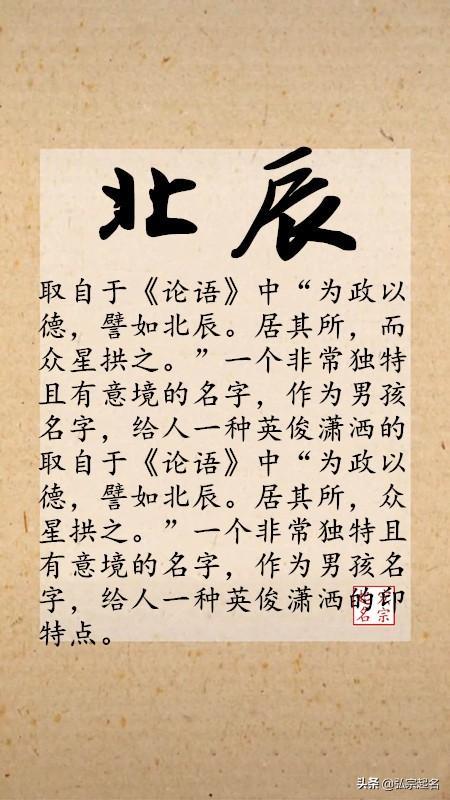 北辰
取自于《论语》中“为政以
德，譬如北辰。居其所，而
众星拱之。”一个非常独特
且有意境的名字，作为男孩
名字，给人一种英俊潇洒的
取自于《论语》中“为政以
德，譬如北辰。居其所，众
星拱之。”一个非常独特且
有意境的名字，作为男孩名
字，给人一种英俊潇洒的印
特点。
头条 @弘宗起名